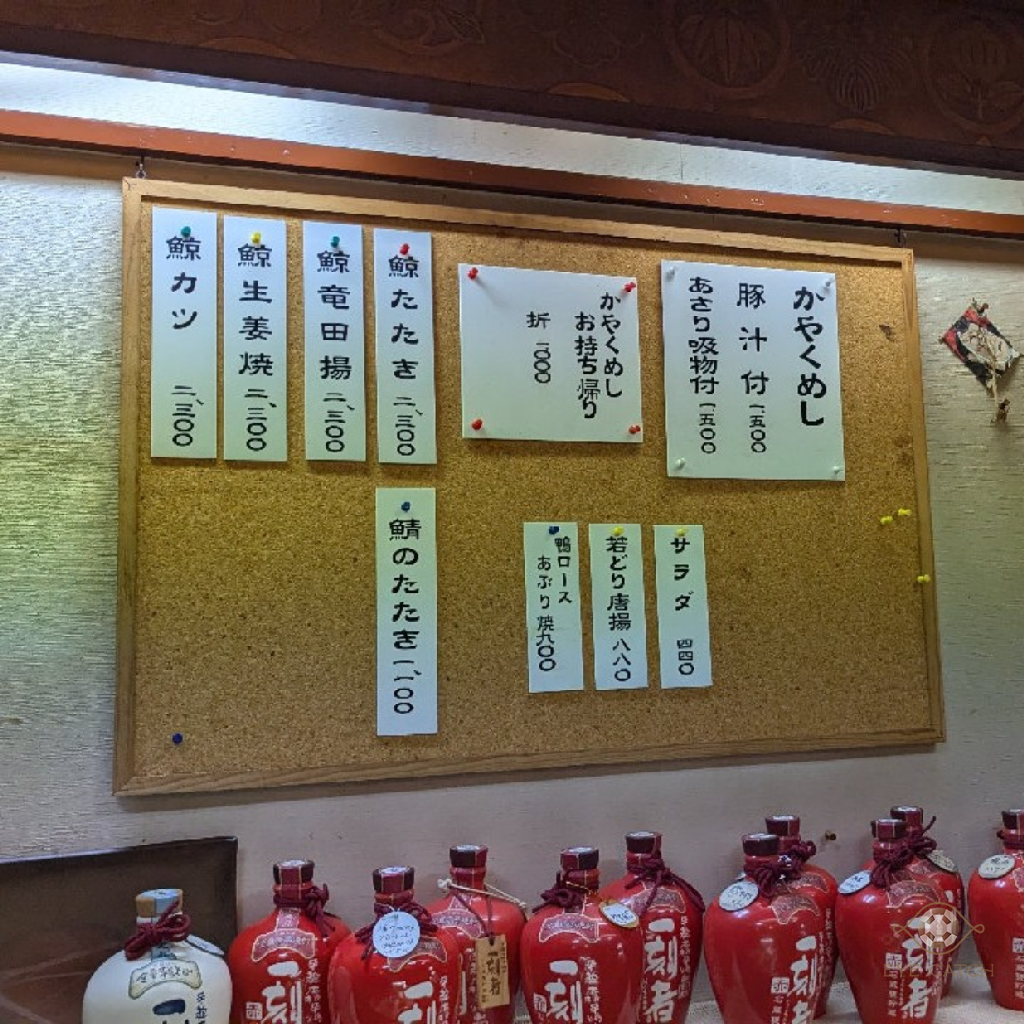 かやくめし
豚汁付 一、五〇〇
あさり吸物付 一、五〇〇
かやくめし
お持ち帰り
折 一〇〇〇
鯨たたき 二、三〇〇
鯨竜田揚 二、三〇〇
鯨生姜焼 二、三〇〇
鯨カツ 二、三〇〇
サラダ 四四〇
若どり唐揚 八八〇
鴨ロース
あぶり焼 九〇〇
鯖のたたき 一、一〇〇
一刻者
一刻
一刻
一刻者
一刻
一刻者
一刻者
一刻者